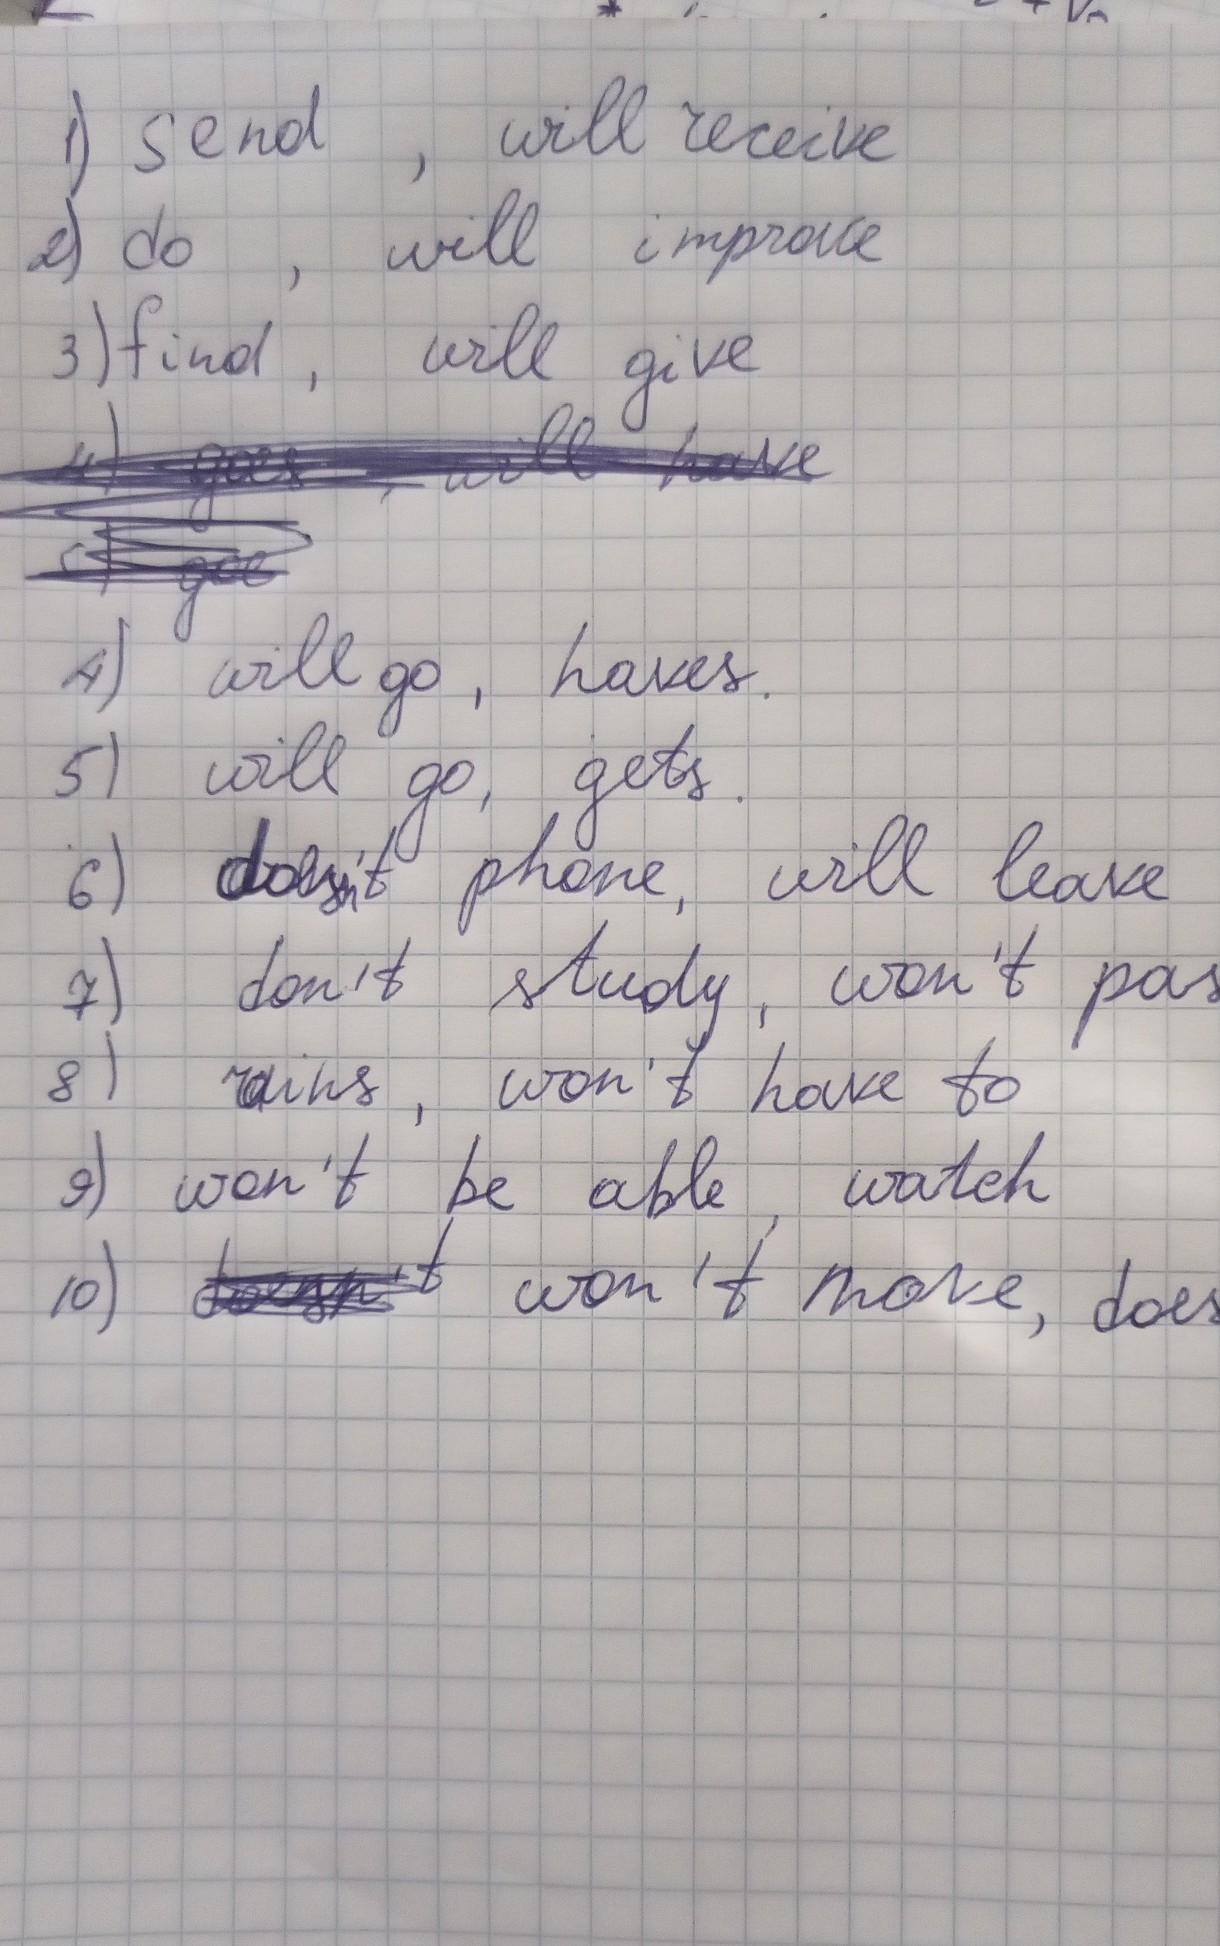 1) send , will receive
2) do , will improve
3) find , will give
4) goes , will have
4) will go , haves.
5) will go, gets.
6) doesn't phone, will leave
7) don't study, won't pas
8) rains, won't have to
9) won't be able, watch
10) doesn't won't move, does